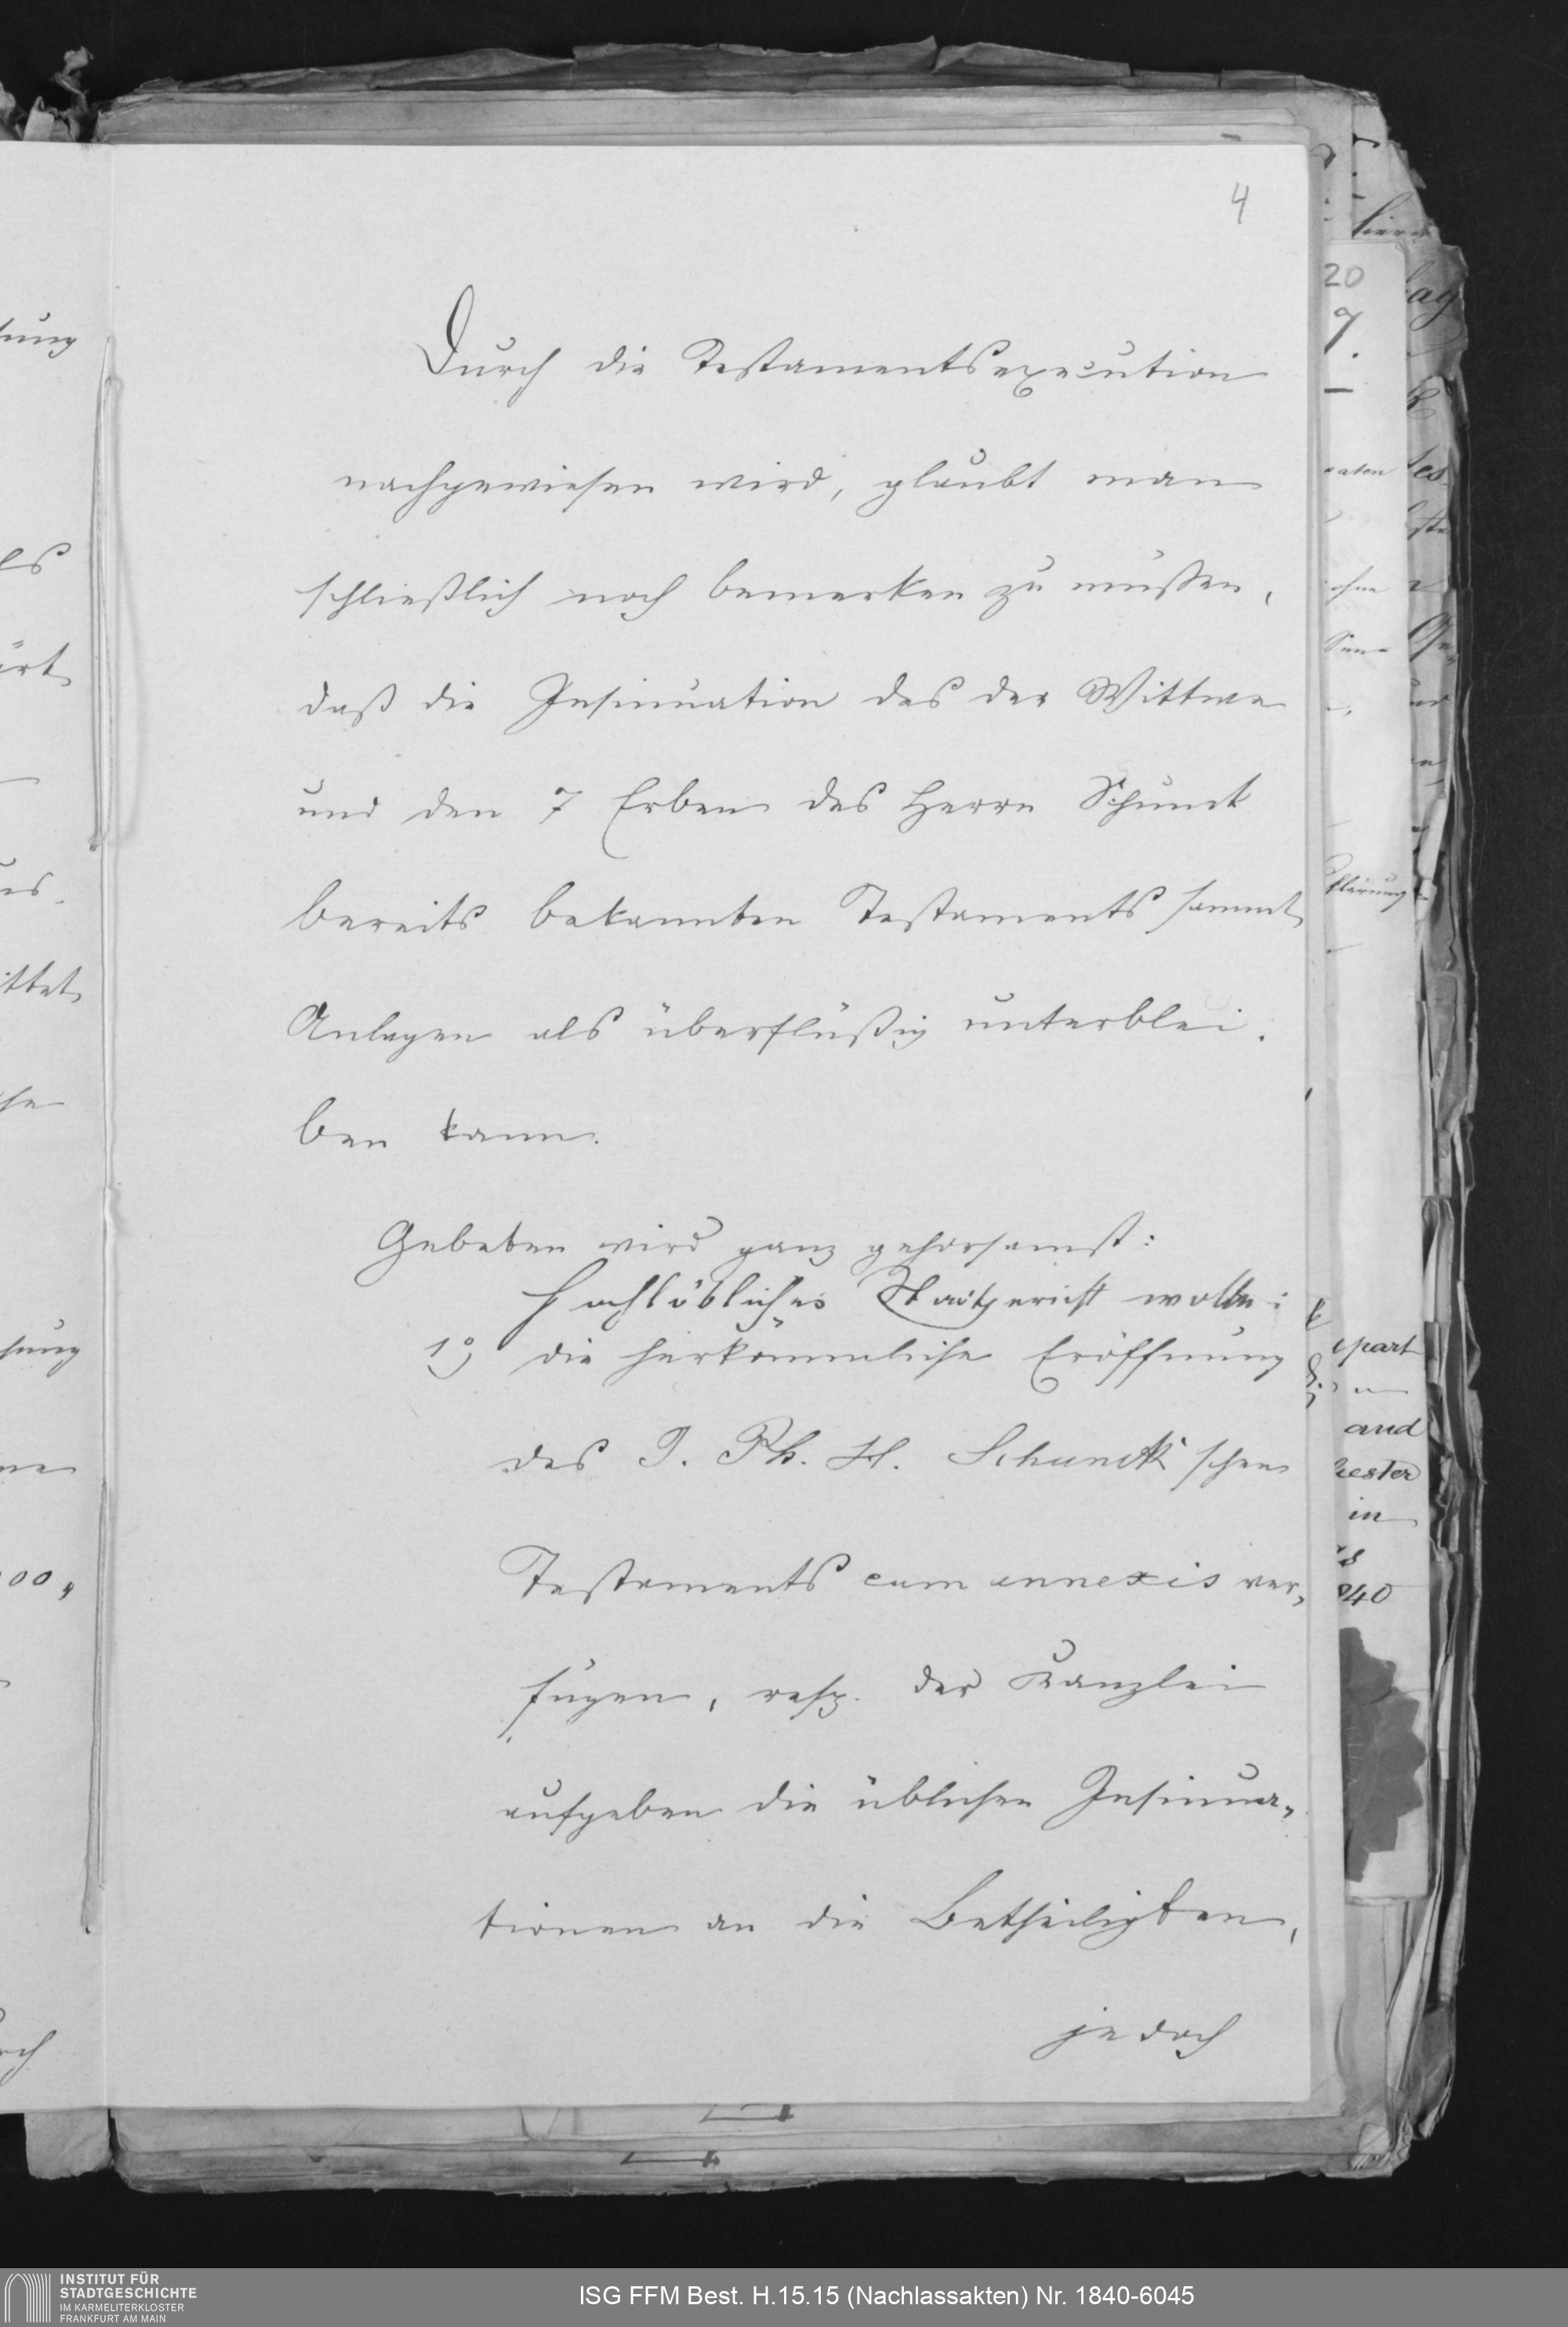 4
Durch die Testamentsexecution
nachgewiesen wird, glaubt man
schließlich noch bemerken zu müssen,
daß die Insinuation des der Wittwe
und den 7 Erben des Herrn Schunck
bereits bekannten Testaments sammt
Anlagen als überflüßig unterblei-
ben kann.
Gebeten wird ganz gehorsamst:
Hochlöbliches Stadtgericht wolle:
1.) die herkömmliche Eröffnung
des J. Ph. H. Schunck'schen
Testaments cum annexis ver-
fügen, resp. der Kanzlei
aufgeben die üblichen Insinua-
tionen an die Betheiligten,
jedoch
20
and
in
INSTITUT FÜR
STADTGESCHICHTE
IM KARMELITERKLOSTER
FRANKFURT AM MAIN
ISG FFM Best. H.15.15 (Nachlassakten) Nr. 1840-6045